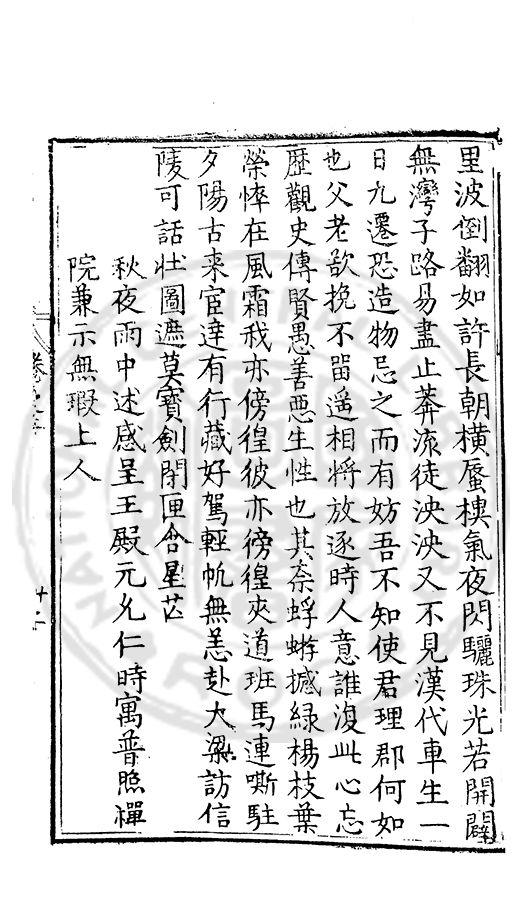 里波倒翻如許長朝橫蜃樓氣夜閃驪珠光若開闢
無灣子路易盡止莽流徒泱泱又不見漢代車生一
日九遷恐造物忌之而有妨吾不知使君理郡何如
也父老欲挽不留遥相將放逐時人意誰復此心忘
歷觀史傳賢愚善惡生性也其柰蜉蝣撼緑楊枝葉
榮悴在風霜我亦傍徨彼亦徬徨夾道班馬連嘶駐
夕陽古来宦達有行藏好駕輕帆無恙赴大梁訪信
陵可話壯圖遮莫寶劍閉匣含星芒
秋夜雨中述感呈王殿元允仁時寓普照禪
院兼示無瑕上人
卷之
十二